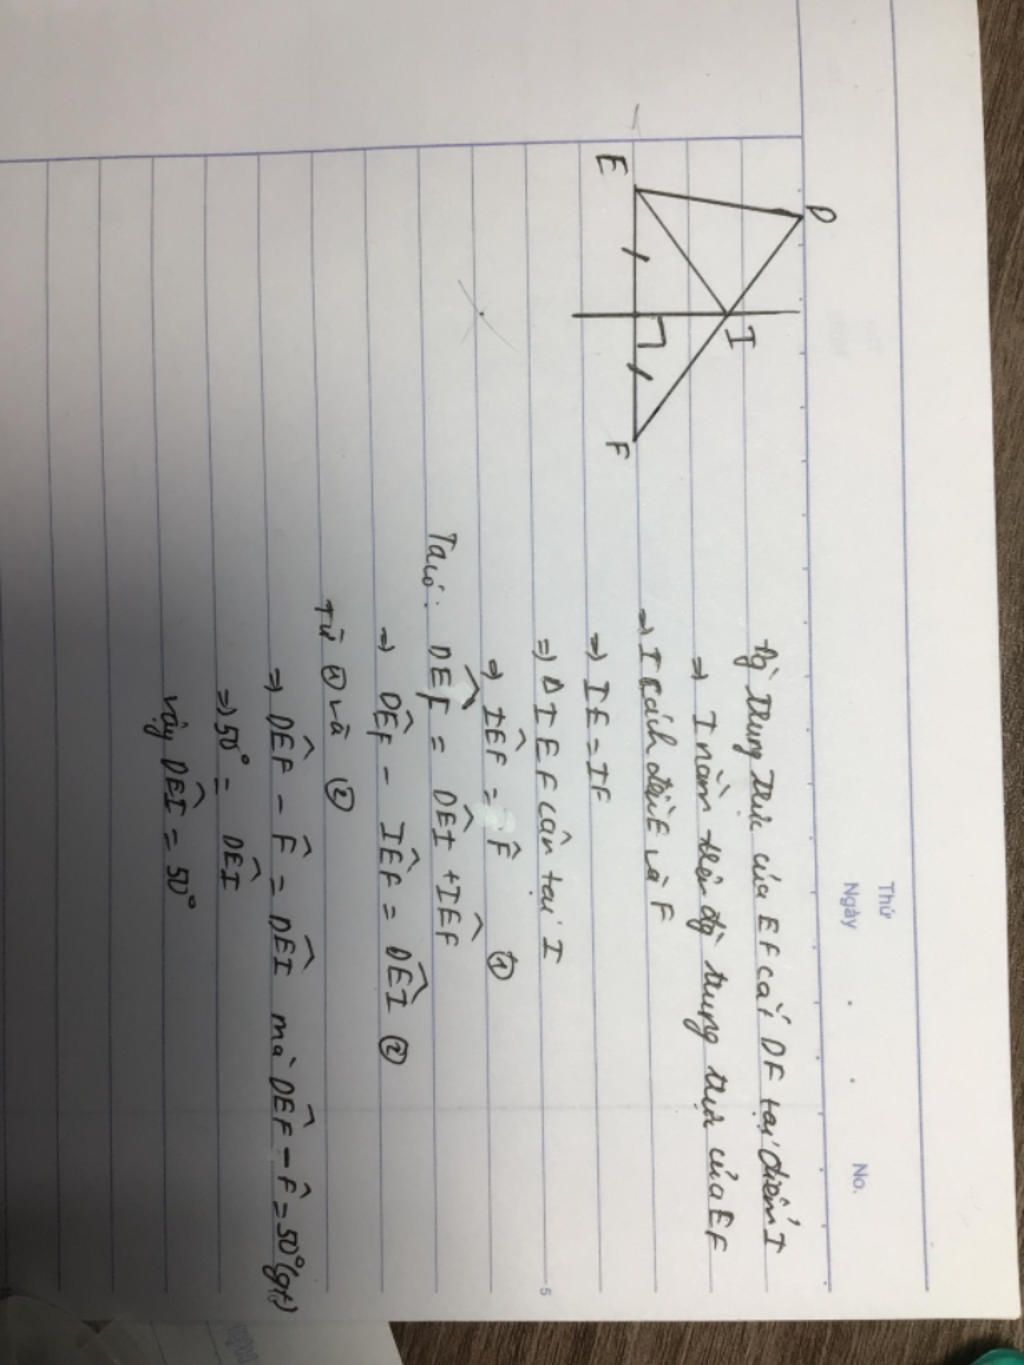 Thứ
Ngày . . No.
D
I
E
F
Đg` trung trực của EF cắt DF tại điểm I
⇒ I nằm trên đg` trung trực của EF
⇒ I cách đều E và F
⇒ IE = IF
⇒ Δ IEF cân tại I
⇒ IÊF = F̂ ①
Ta có: DÊF = DÊI + IÊF
⇒ DÊF - IÊF = DÊI ②
Từ ① và ②
⇒ DÊF - F̂ = DÊI mà DÊF - F̂ = 50° (gt)
⇒ 50° = DÊI
Vậy DÊI = 50°
5